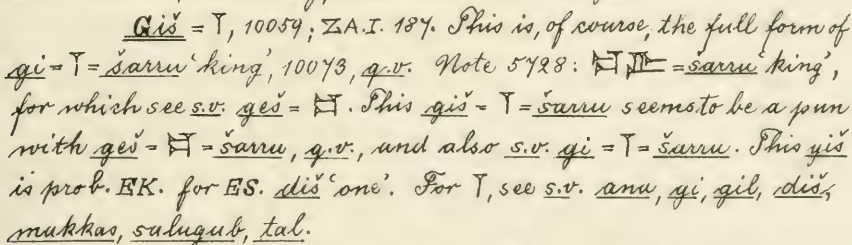 Giš = 𒁹, 10059; ZA.I. 187. This is, of course, the full form of
gi = 𒁹 = šarru 'king', 10073, q.v. Note 5728: = šarru 'king',
for which see s.v. geš = 𒄑. This giš = 𒁹 = šarru seems to be a pun
with geš = 𒄑 = šarru, q.v., and also s.v. gi = 𒁹 = šarru. This giš
is prob. EK. for ES. diš 'one'. For 𒁹, see s.v. ana, gi, gil, diš,
mukkas, sulugub, tal.